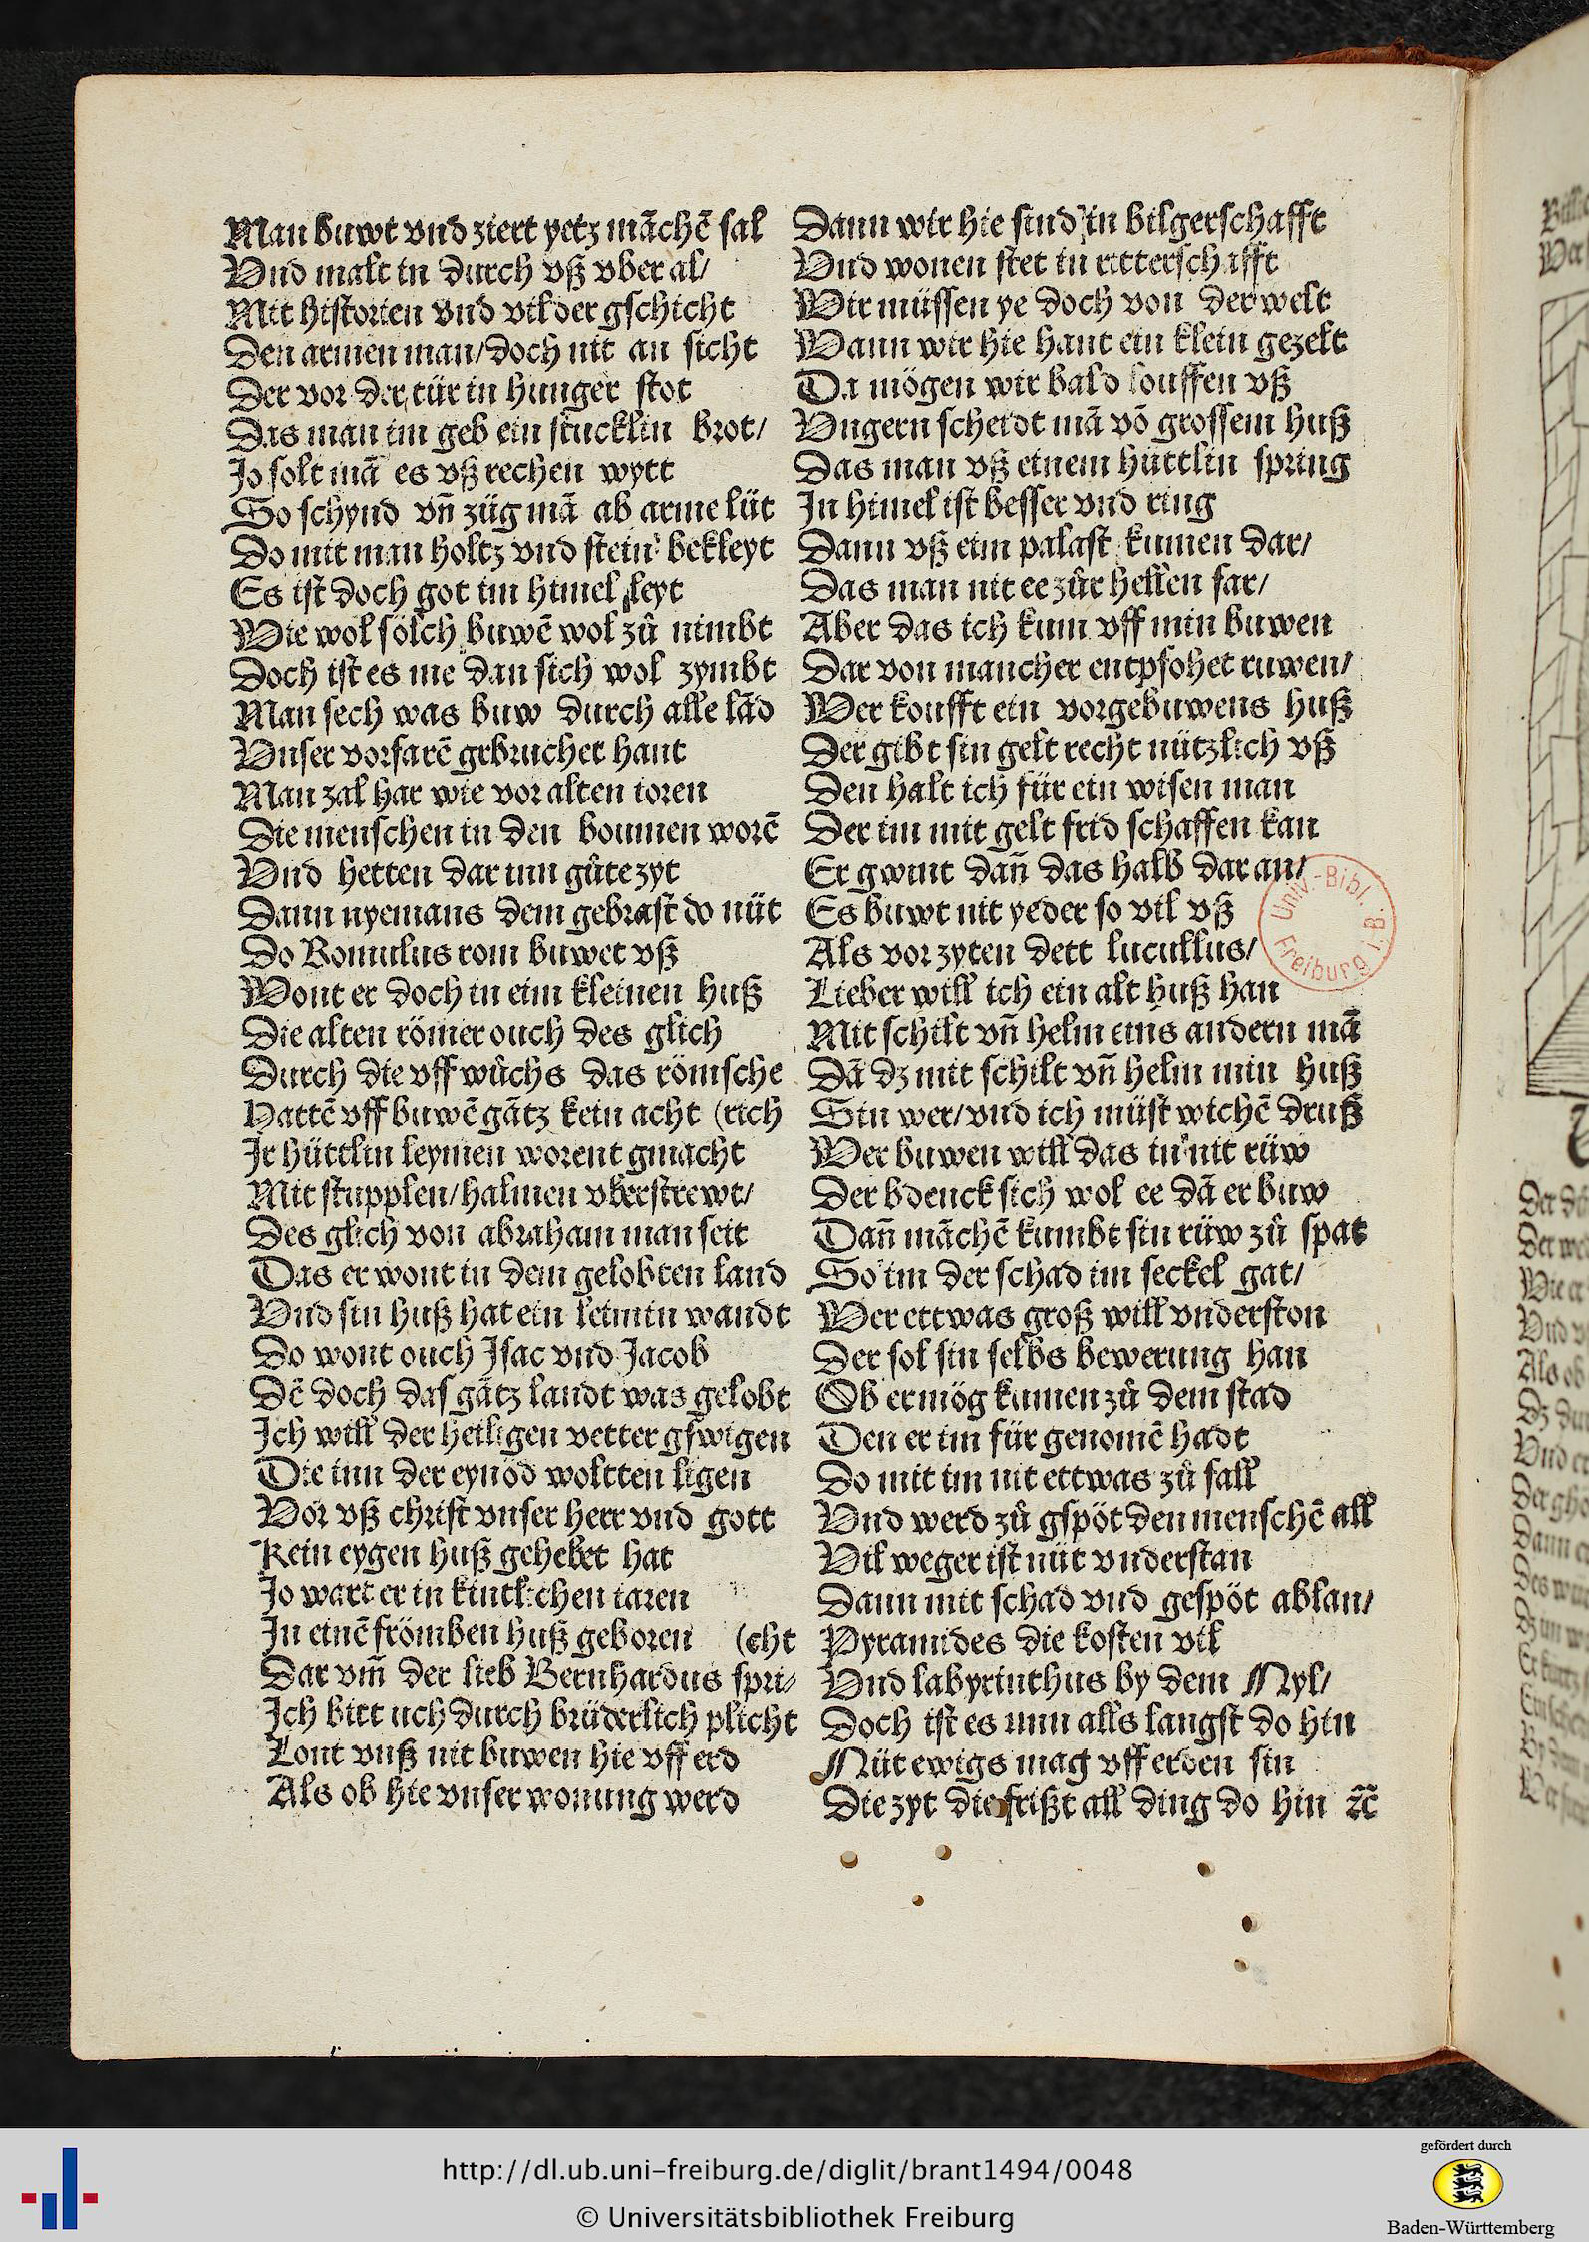 Man buwt vnd ziert yetz mãchẽ sal
Vnd malt in durch vß vber al/
Mit historien vnd vil der gschicht
Den armen man/doch nit an sicht
Der vor der tür in hunger stot
Das man im geb ein stucklin brot/
Jo solt mã es vß rechen wytt
So schynd vñ züg mã ab arme lüt
Do mit man holtz vnd stein bekleyt
Es ist doch got im himel leyt
Wie wol sölch buwẽ wol zů nimbt
Doch ist es me dan sich wol zymbt
Man sech was buw durch alle lãd
Vnser vorfarẽ gebruchet hant
Man zal har wie vor alten ioren
Die menschen in den boumen worẽ
Vnd hetten dar inn gůte zyt
Dann nyemans dem gebrast do nüt
Do Romulus rom buwet vß
Wont er doch in eim kleinen huß
Die alten römer ouch des glich
Durch die vff wůchs das römsche
Hattẽ vff buwẽ gãtz kein acht (rich
Ir hüttlin leymen worent gmacht
Mit stupplen/halmen vberstrewt/
Des glich von abraham man seit
Das er wont in dem gelobten land
Vnd sin huß hat ein leimin wandt
Do wont ouch Jsac vnd Jacob
Dẽ doch das gãtz landt was gelobt
Ich will der heiligen vetter gswigen
Die inn der eynöd woltten ligen
Vor vß christ vnser herr vnd gott
Kein eygen huß gehebet hat
Jo wart er in kintlichen iaren
In einẽ frömben huß geboren (cht
Dar vm̃ der lieb Bernhardus spri⸗
Ich bitt uch durch brüderlich plicht
Lont vnß nit buwen hie vff erd
Als ob hie vnser wonung werd
Dann wir hie sind in bilgerschafft
Vnd wonen stet in ritterschafft
Wir müssen ye doch von der welt
Wann wir hie hant ein klein gezelt
Da mögen wir bald louffen vß
Vngern scheidt mã võ grossem huß
Das man vß einem hüttlin spring
In himel ist besser vnd ring
Dann vß eim palast kumen dar/
Das man nit ee zůr hellen far/
Aber das ich kum vff min buwen
Dar von mancher entpfohet ruwen/
Wer koufft ein vorgebuwens huß
Der gibt sin gelt recht nützlich vß
Den halt ich für ein wisen man
Der im mit gelt frid schaffen kan
Er gwint dañ das halb dar an/
Es buwt nit yeder so vil vß
Als vor zyten dett lucullus/
Lieber will ich ein alt huß han
Mit schilt vñ helm eins andern mã
Dã dz mit schilt vñ helm min huß
Sin wer/vnd ich müst wichẽ druß
Wer buwen will das in nit rüw
Der bdenck sich wol ee dã er buw
Dañ mãchẽ kumbt sin rüw zů spat
So im der schad im seckel gat/
Wer ettwas groß will vnderston
Der sol sin selbs bewerung han
Ob er mög kumen zů dem stad
Den er im für genomẽ hadt
Do mit im nit ettwas zů fall
Vnd werd zů gspöt den menschẽ all
Vil weger ist nüt vnderstan
Dann mit schad vnd gespöt ablan/
Pyramides die kosten vil
Vnd labyrinthus by dem Nyl/
Doch ist es nun alls langst do hin
Nüt ewigs mag vff erden sin
Die zyt die frißt all ding do hin ⁊c̃
Univ.-Bibl.
Freiburg i. B.
http://dl.ub.uni-freiburg.de/diglit/brant1494/0048
© Universitätsbibliothek Freiburg
gefördert durch
Baden-Württemberg